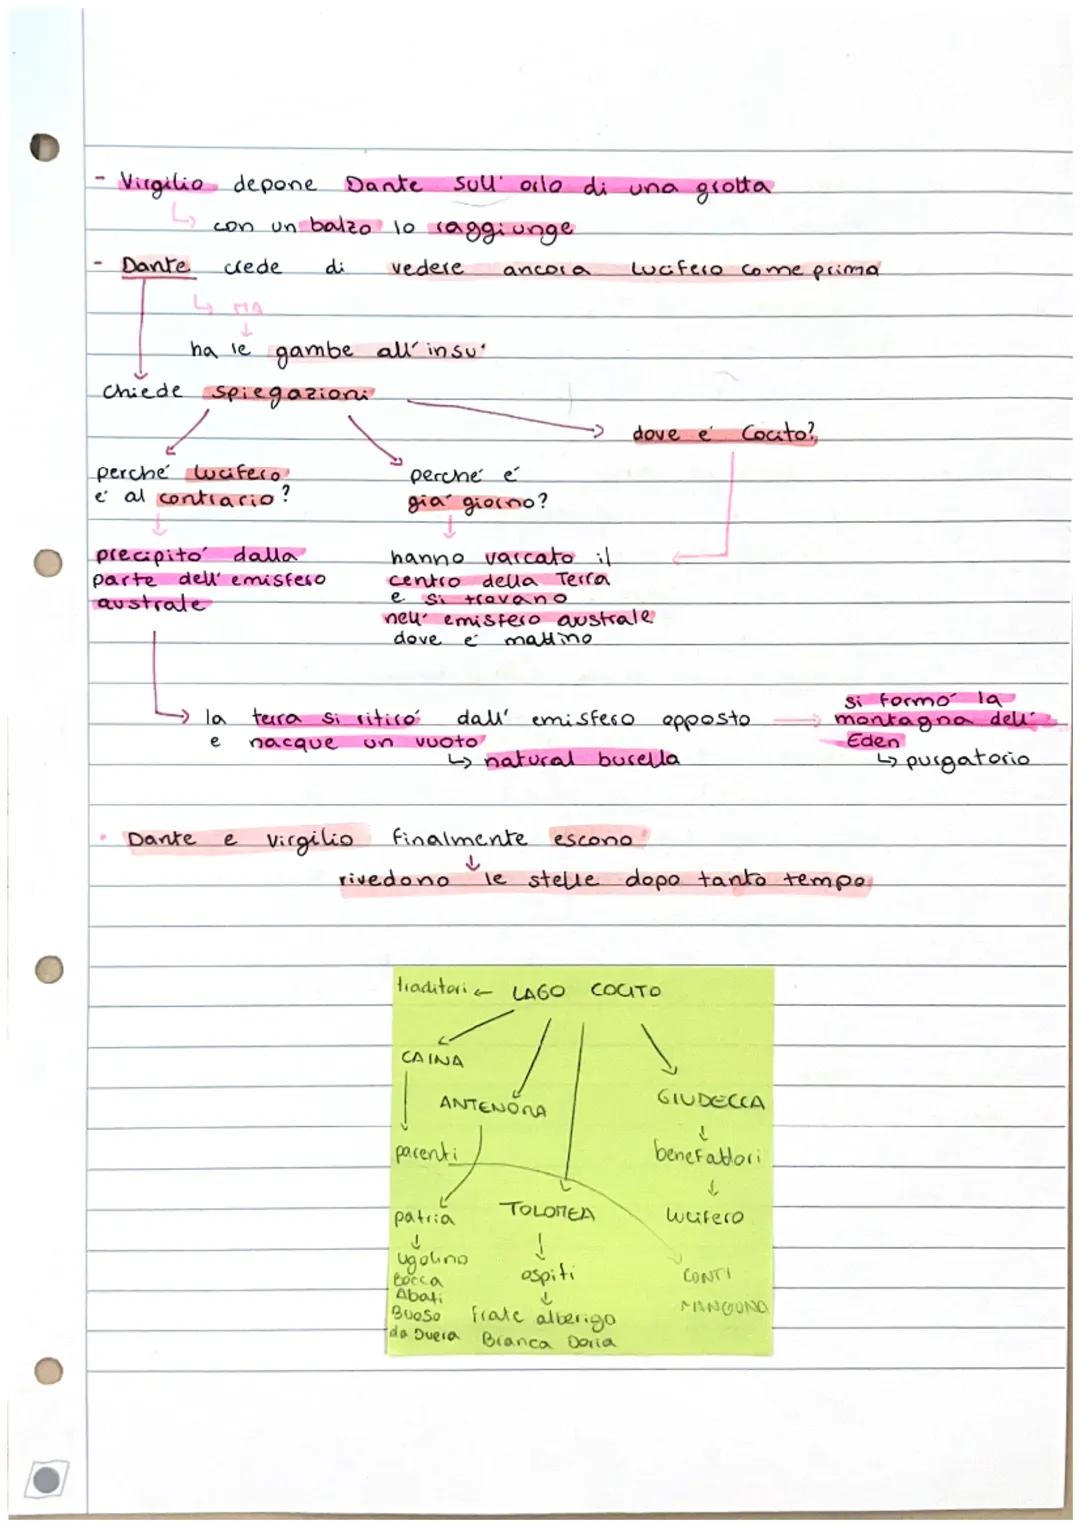 - Virgilio depone Dante sull' orlo di una grotta
↳ con un balzo lo raggiunge
- Dante crede di vedere ancora Lucifero come prima
↳ MA
↓
ha le gambe all' insu'
chiede spiegazioni
dove e' Cocito?
perche' Lucifero
e' al contrario?
perche' e'
gia' giorno?
precipito' dalla
parte dell' emisfero
australe
hanno varcato il
centro della Terra
e si trovano
nell' emisfero australe
dove e' mattino
→ la terra si ritiro' dall' emisfero opposto →
e nacque un vuoto
↳ natural burella
si formo' la
montagna dell'
Eden
↳ purgatorio
• Dante e Virgilio finalmente escono
↓
rivedono le stelle dopo tanto tempo
traditori ← LAGO COCITO
CAINA
ANTENORA
GIUDECCA
↓
parenti
benefattori
↓
patria
TOLOMEA
Lucifero
↓
ugolino
Bocca
Abati
Buoso
da Duera
↓
ospiti
↓
frate alberigo
Branca Doria
CONTI
MANGONA